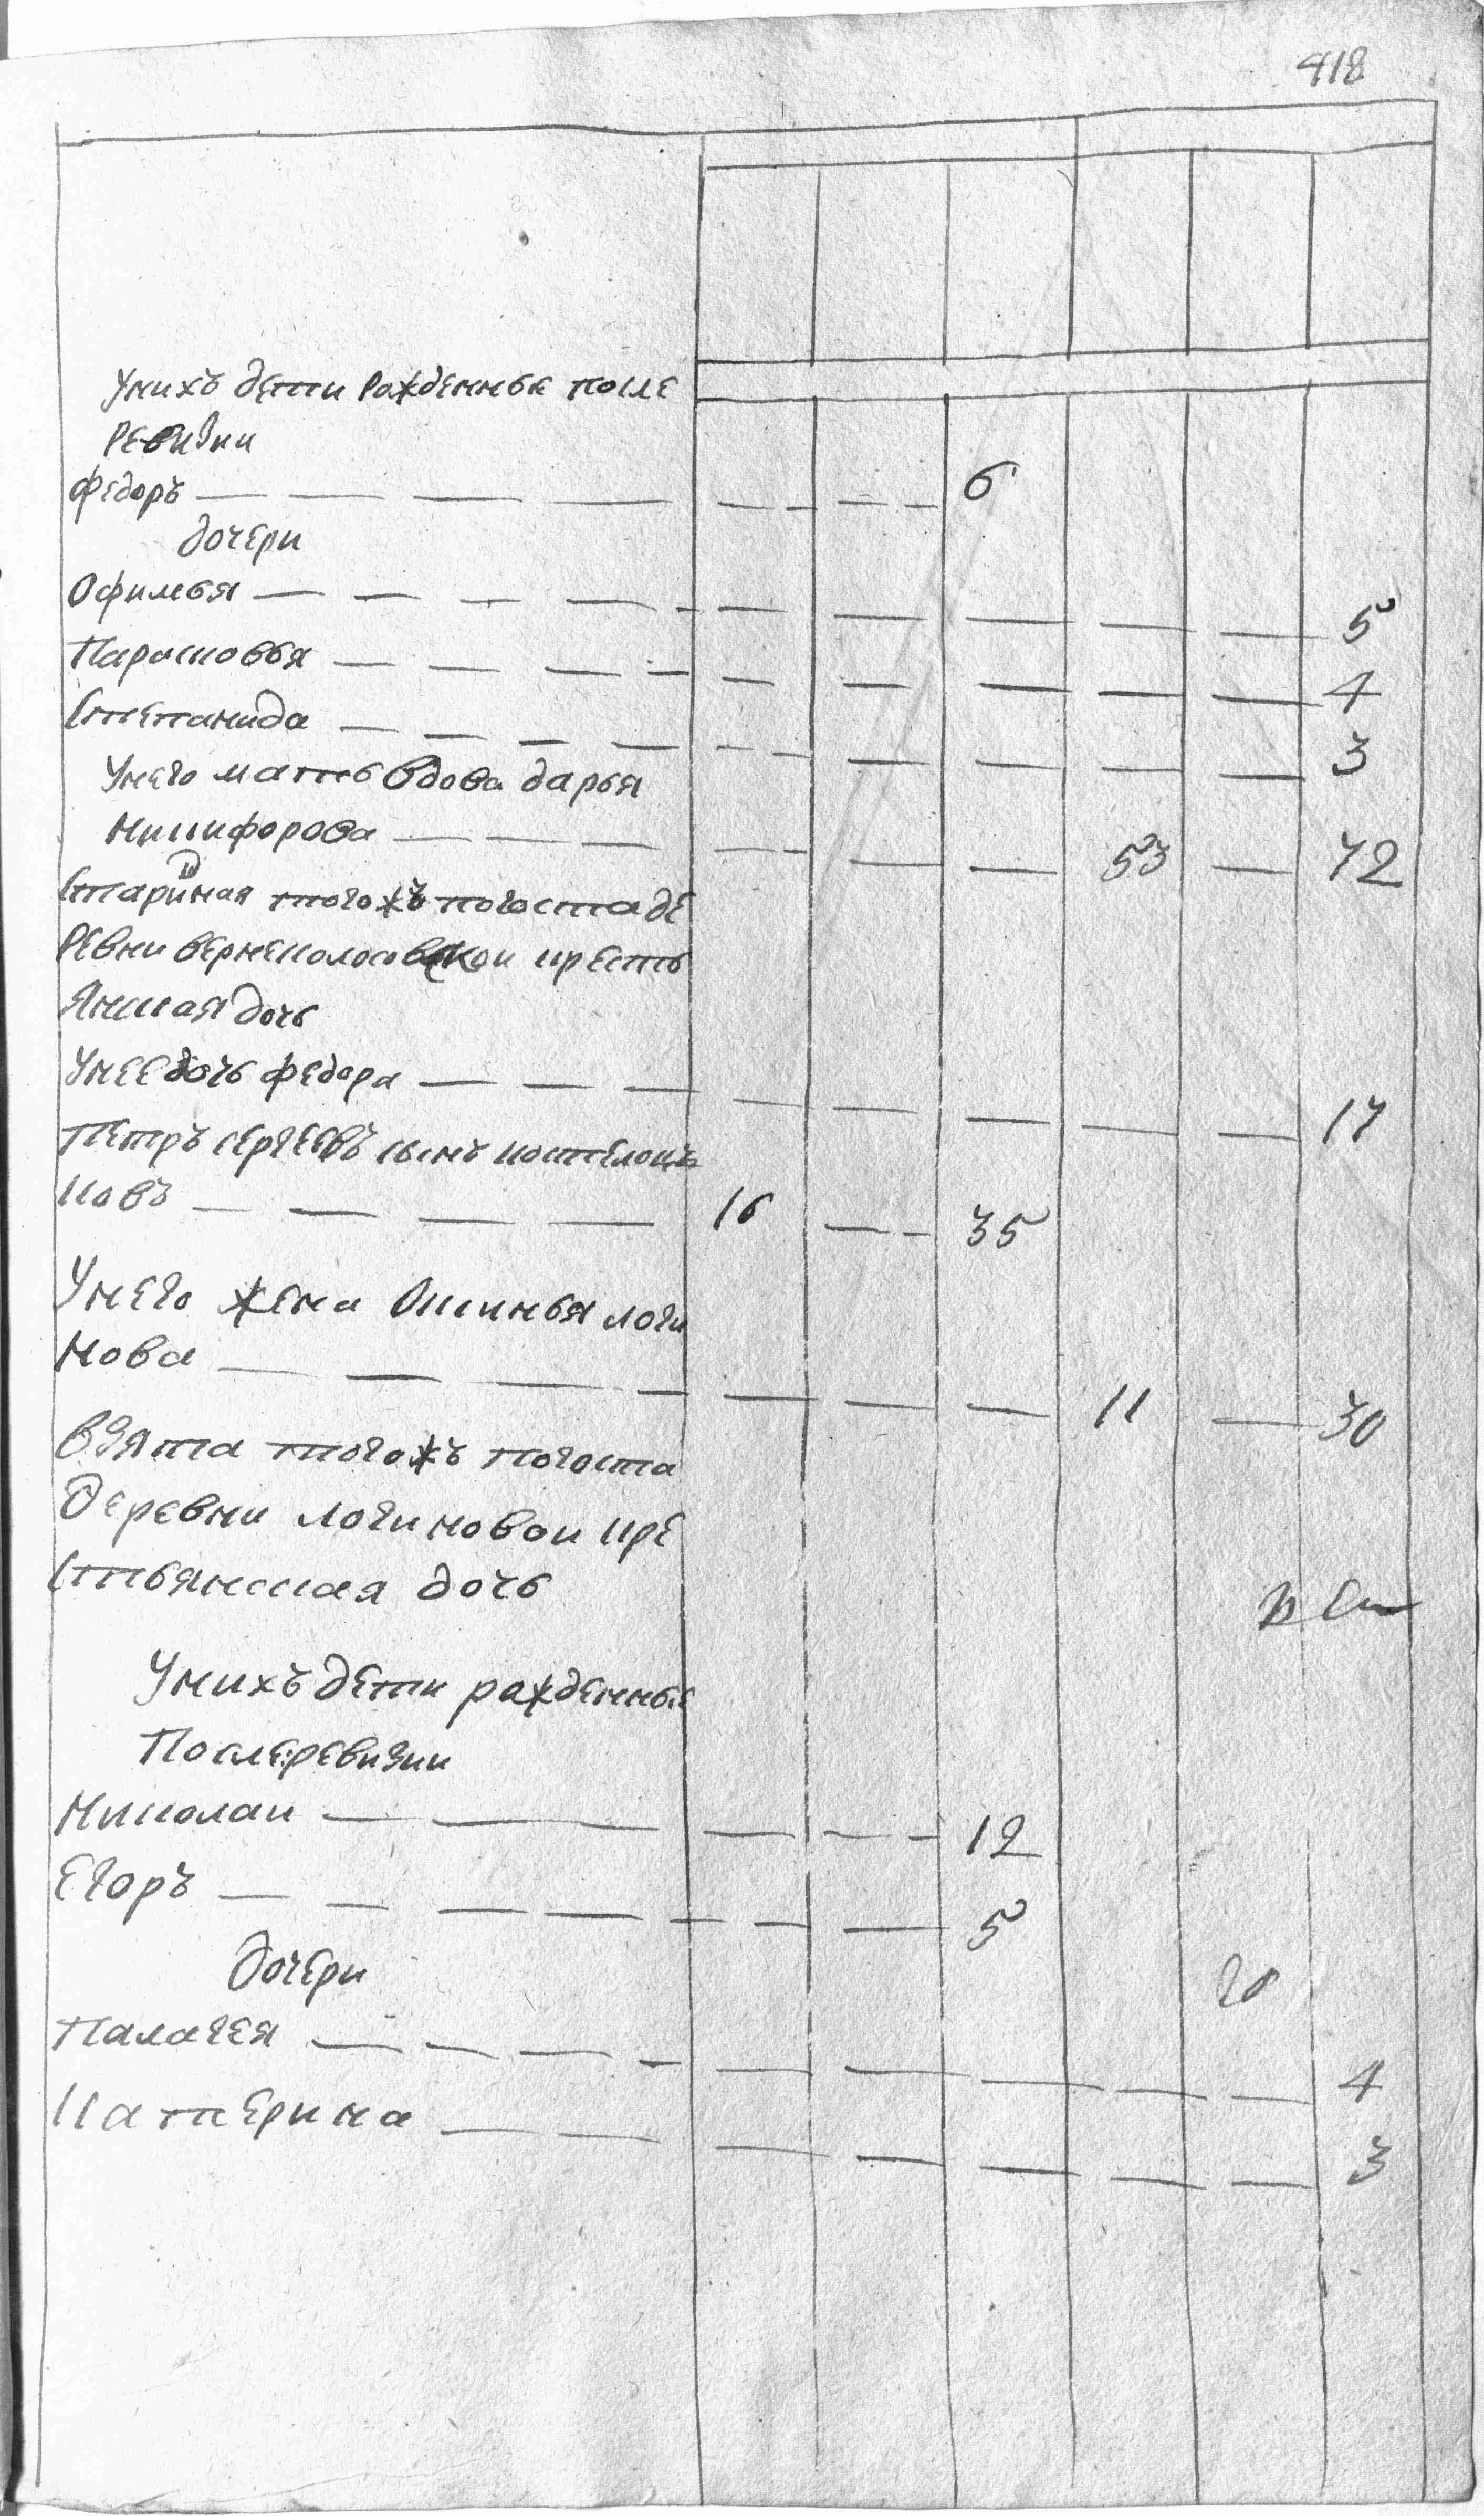 418
У нихъ дети рожденные после
Ревизии
Федоръ — — — — — — — 6
дочери
Офимья — — — — — — — — — — 5
Парасковья — — — — — — — — — 4
Степанида — — — — — — — — — — 3
У него мать вдова дарья
Никифорова — — — — — — — 53 — 72
Старинная того жъ погоста де
Ревни верхнеколосовской кресть
Янская дочь
У нее дочь федора — — — — — — — — 17
Петръ сергеевъ сынъ
ковъ — — — — 16 — — 35
У него жена Оксинья логи
нова — — — — — — — 11 — 30
Взята того жъ погоста
деревни логиновой кре
стьянская дочь
У нихъ дети рожденные
После ревизии
Николай — — — — — — 12
Егоръ — — — — — — — 5
дочери
20
Палагея — — — — — — — — — 4
Катерина — — — — — — — — 3